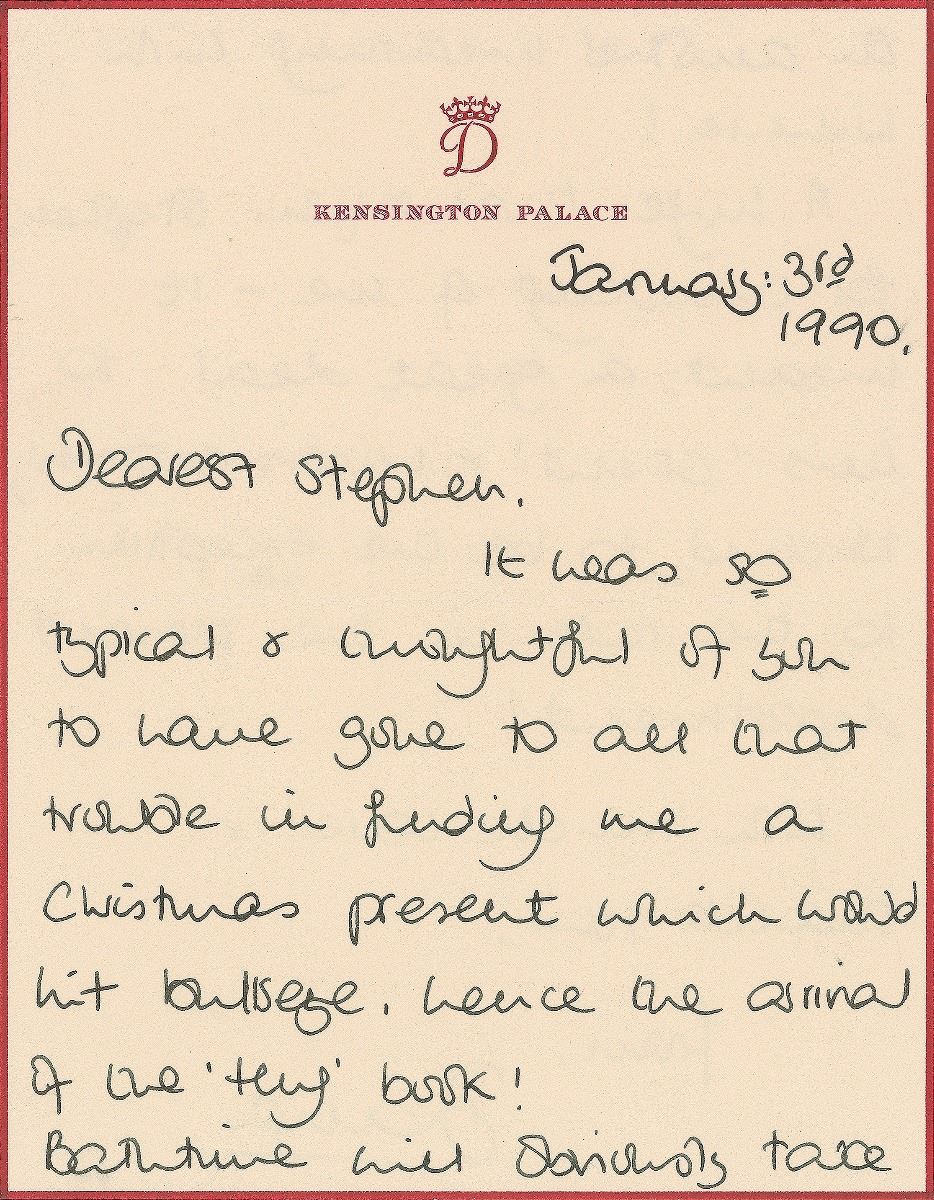 D
KENSINGTON PALACE
January: 3rd
1990.
Dearest Stephen.
It was so
typical & thoughtful of you
to have gone to all that
trouble in finding me a
Christmas present which would
hit bullseye, hence the arrival
of the ' ' book!
Bathtime will obviously take